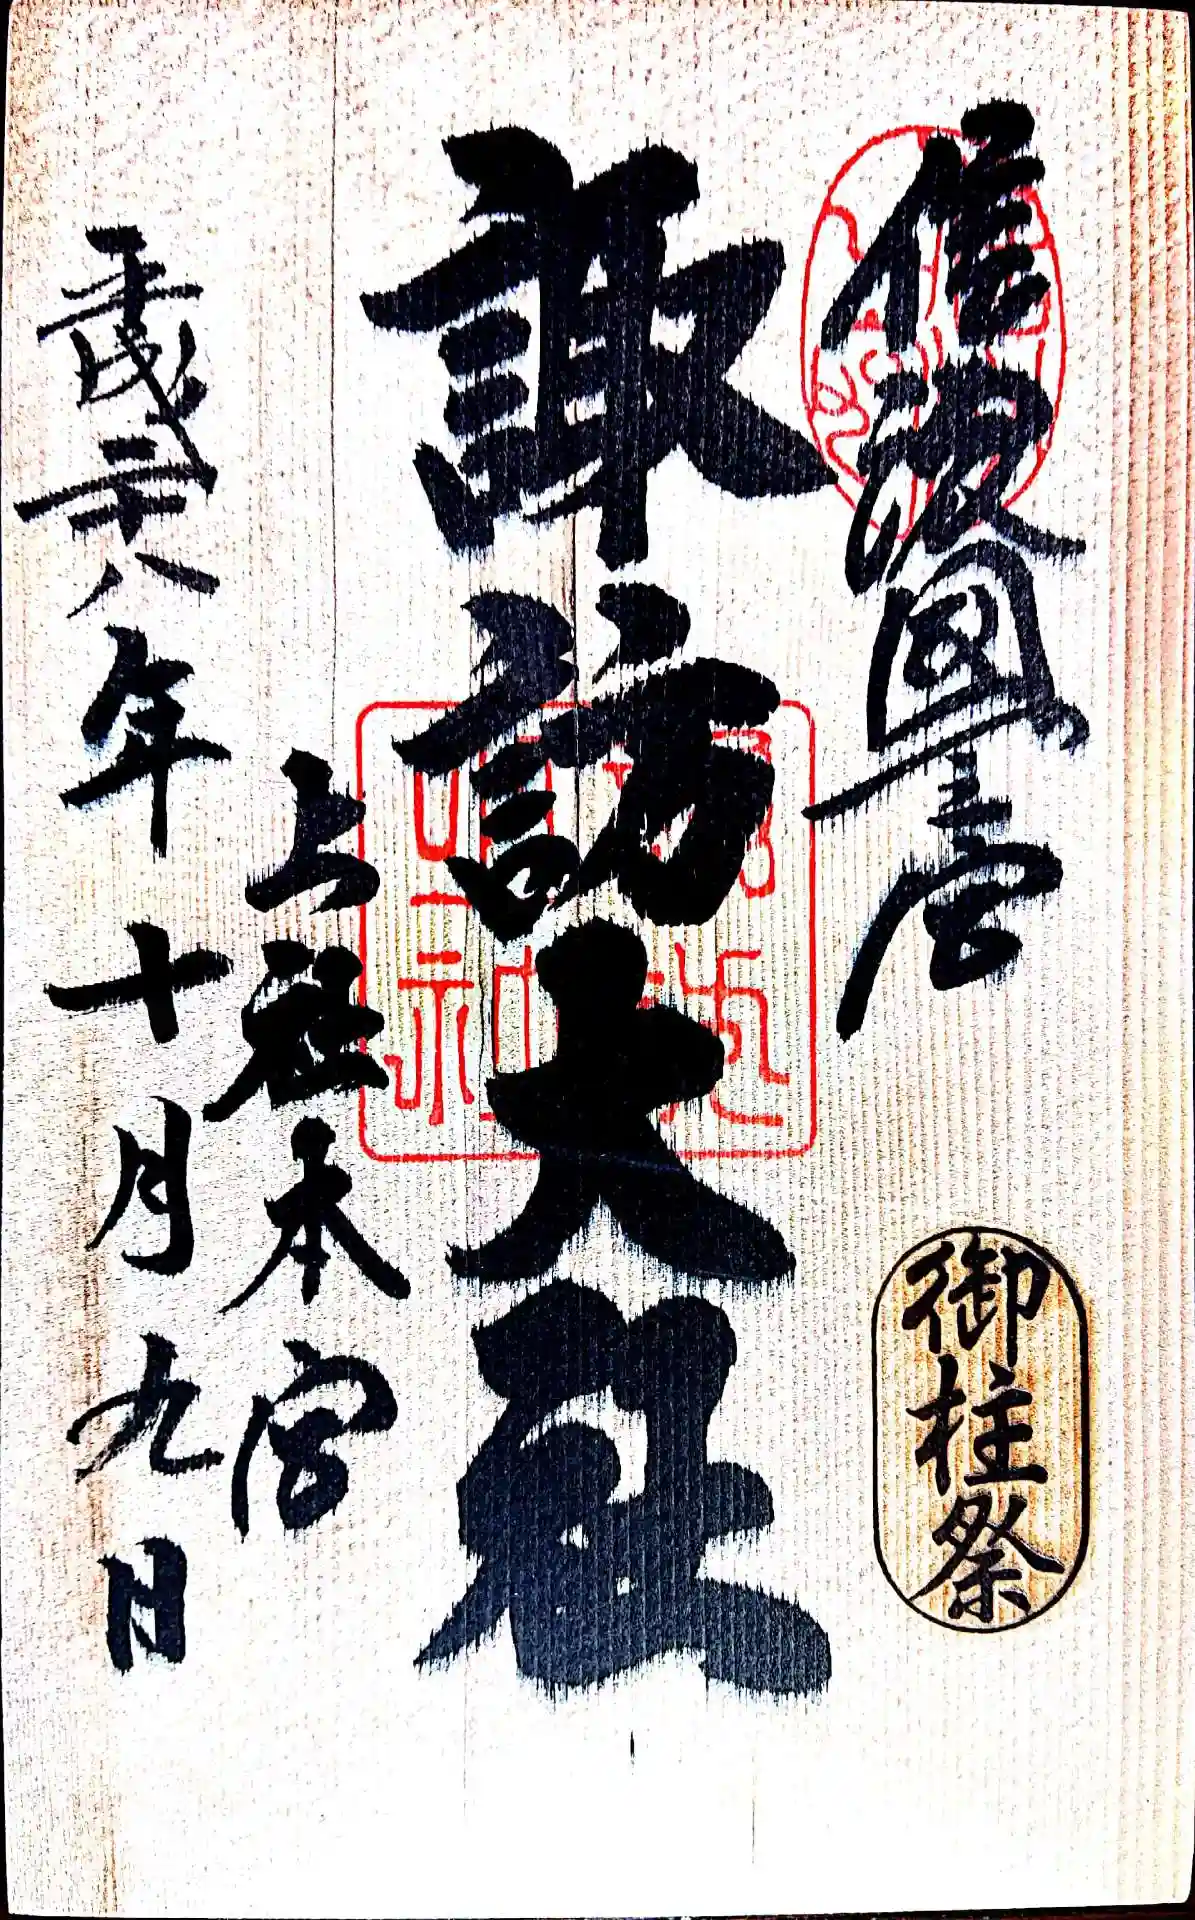 信濃國一宮
御柱祭
諏訪大社
上社本宮
平成二十八年十月九日